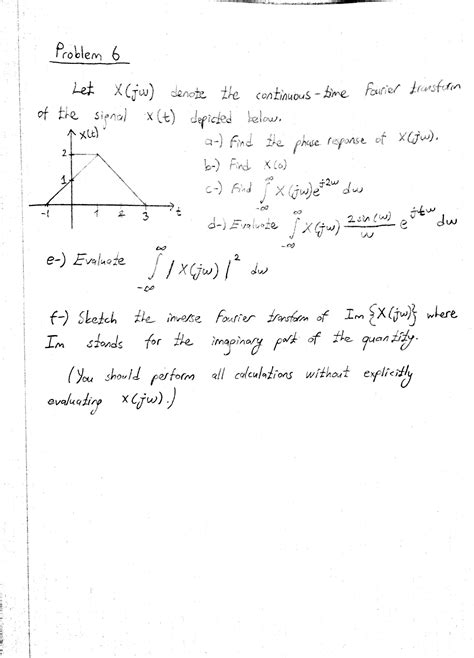 Problem 6
Let X(jw) denote the continuous-time Fourier transform
of the signal x(t) depicted below.
x(t)
2
1
-1 1 2 3 t
a-) Find the phase reponse of X(jw).
b-) Find X(0)
c-) Find ∫_{-∞}^{∞} X(jw)e^{j2w} dw
d-) Evaluate ∫_{-∞}^{∞} X(jw) 2sin(w)/w e^{jtw} dw
e-) Evaluate ∫_{-∞}^{∞} |X(jw)|^2 dw
f-) Sketch the inverse Fourier transform of Im{X(jw)} where
Im stands for the imaginary part of the quantity.
(You should perform all calculations without explicitly
evaluating X(jw).)